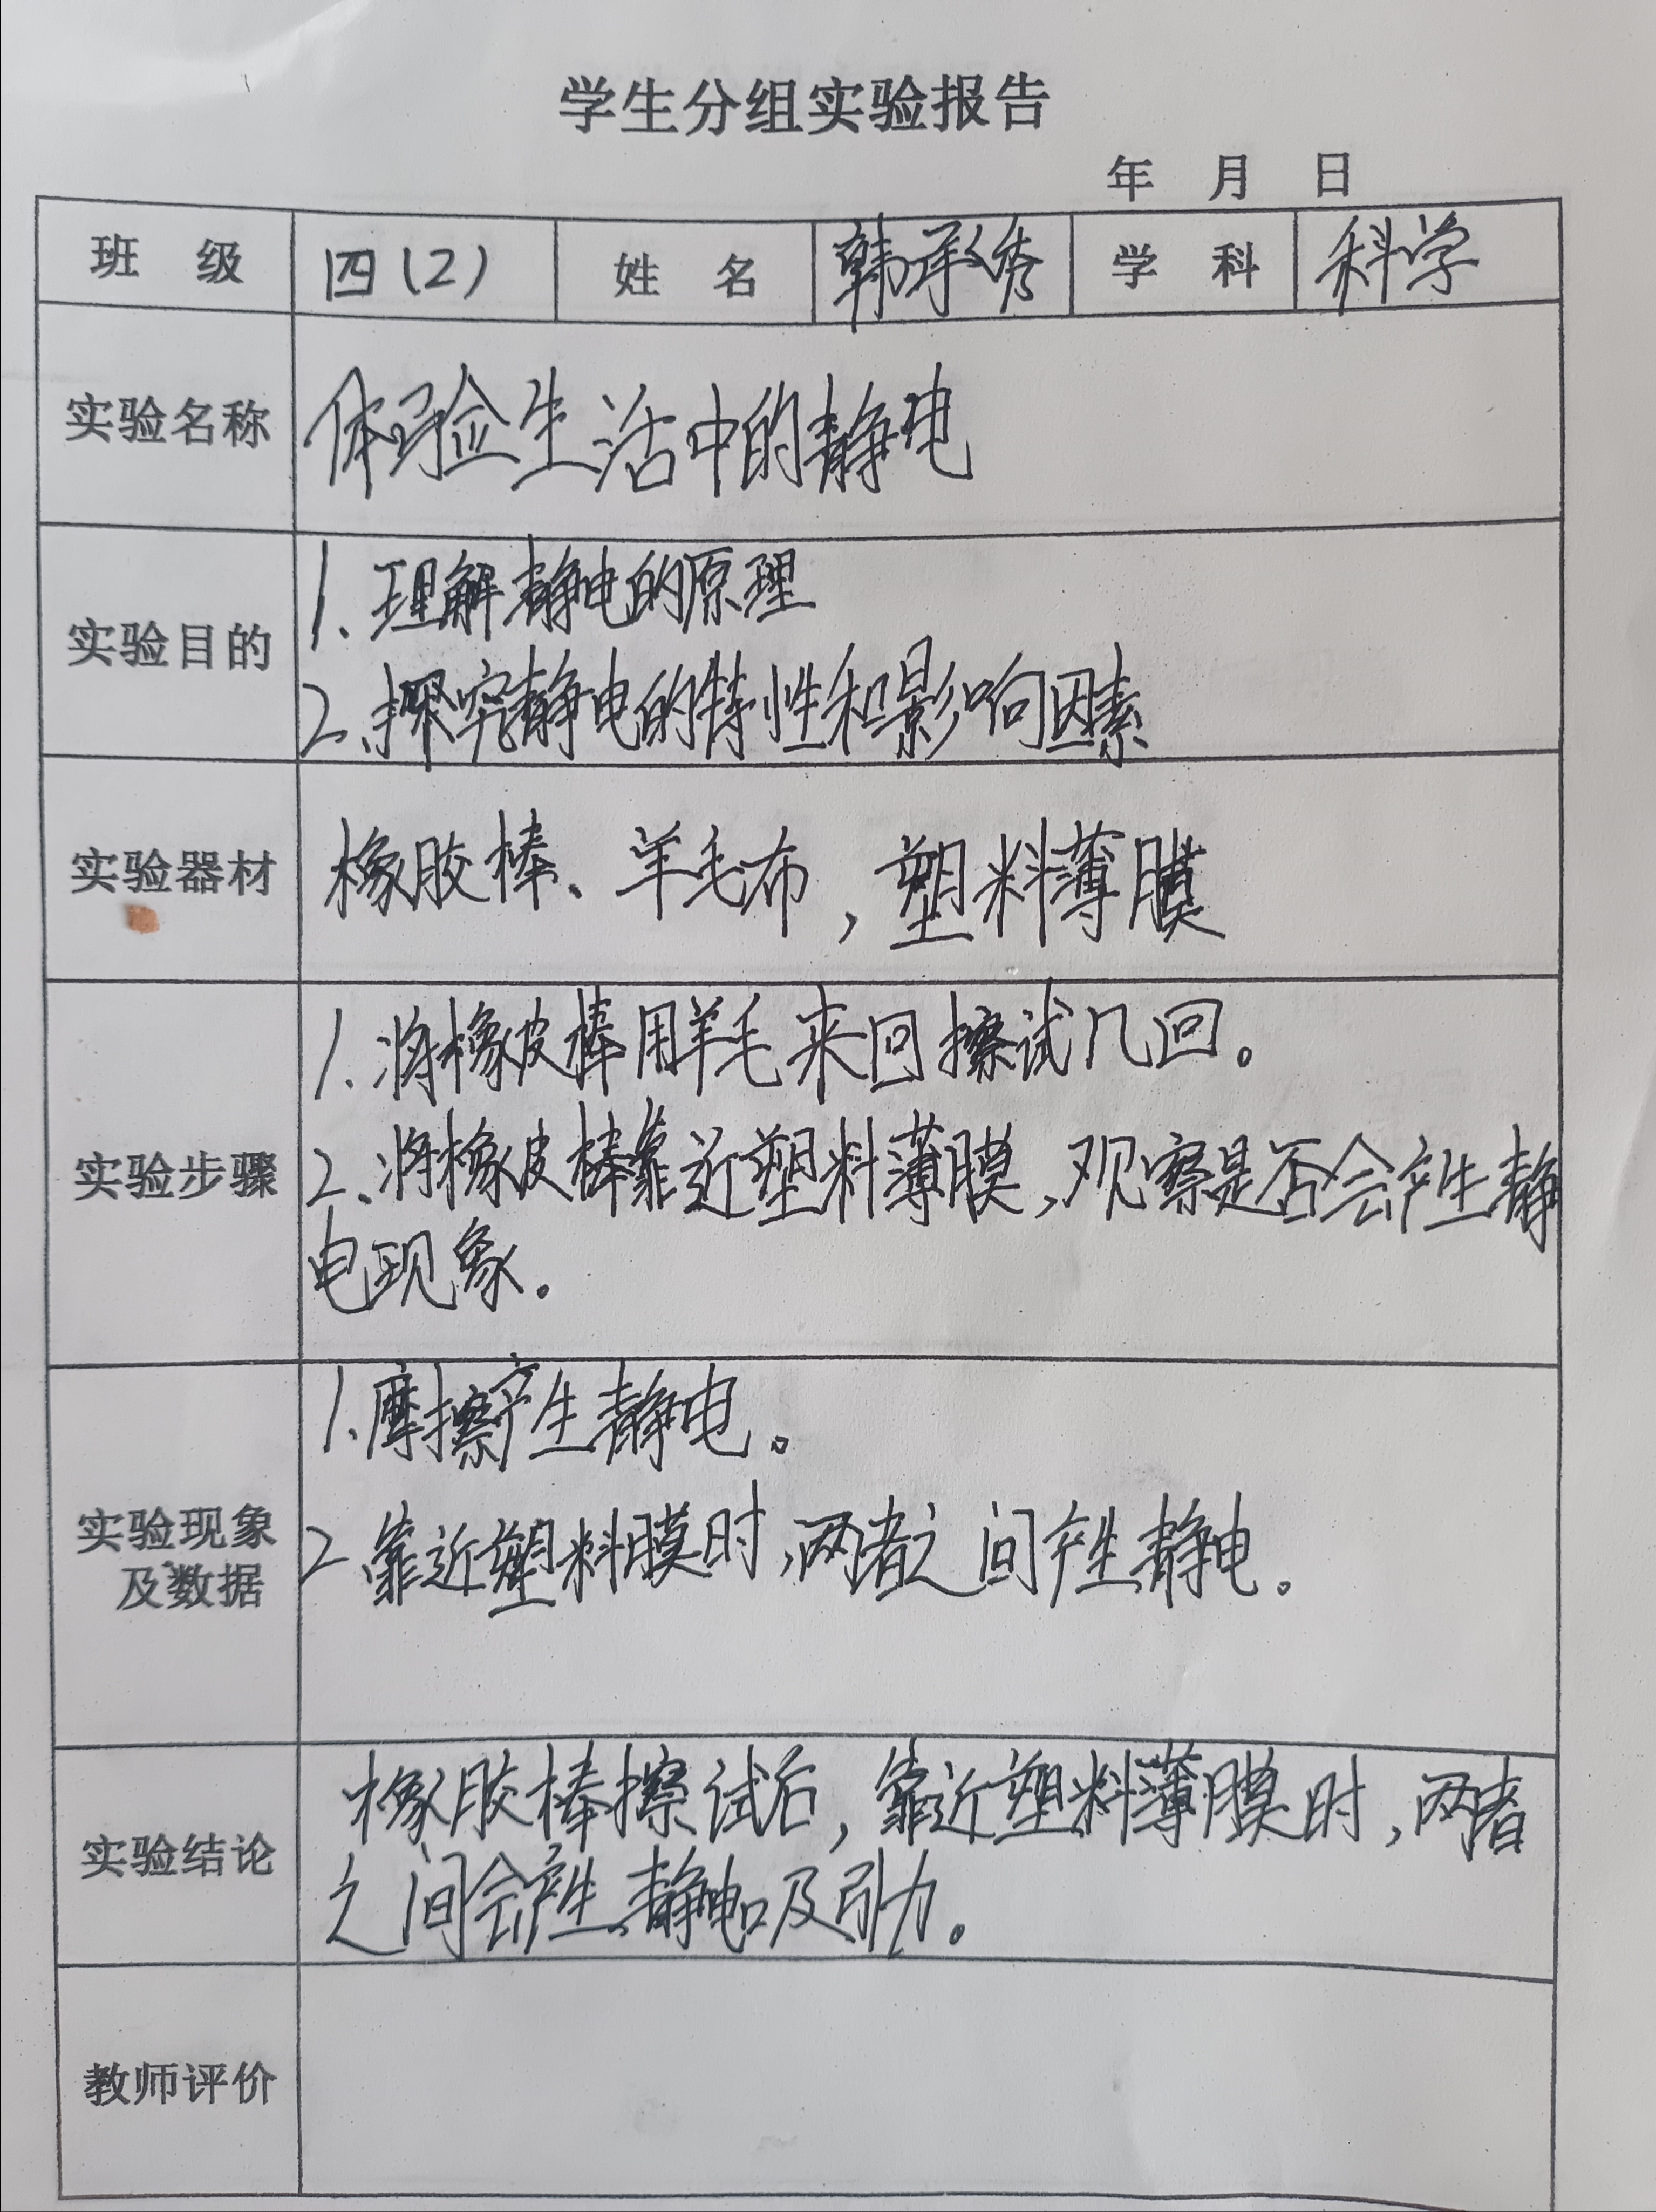 学生分组实验报告
年 月 日
班 级 四(2) 姓 名 韩承秀 学 科 科学
实验名称 体验生活中的静电
实验目的
1、理解静电的原理
2、探究静电的特性和影响因素
实验器材 橡胶棒、羊毛布,塑料薄膜
实验步骤
1、将橡皮棒用羊毛来回擦试几回。
2、将橡皮棒靠近塑料薄膜,观察是否会产生静
电现象。
实验现象
及数据
1、摩擦产生静电。
2、靠近塑料膜时,两者之间产生静电。
实验结论
橡胶棒擦试后,靠近塑料薄膜时,两者
之间会产生静电吸引力。
教师评价